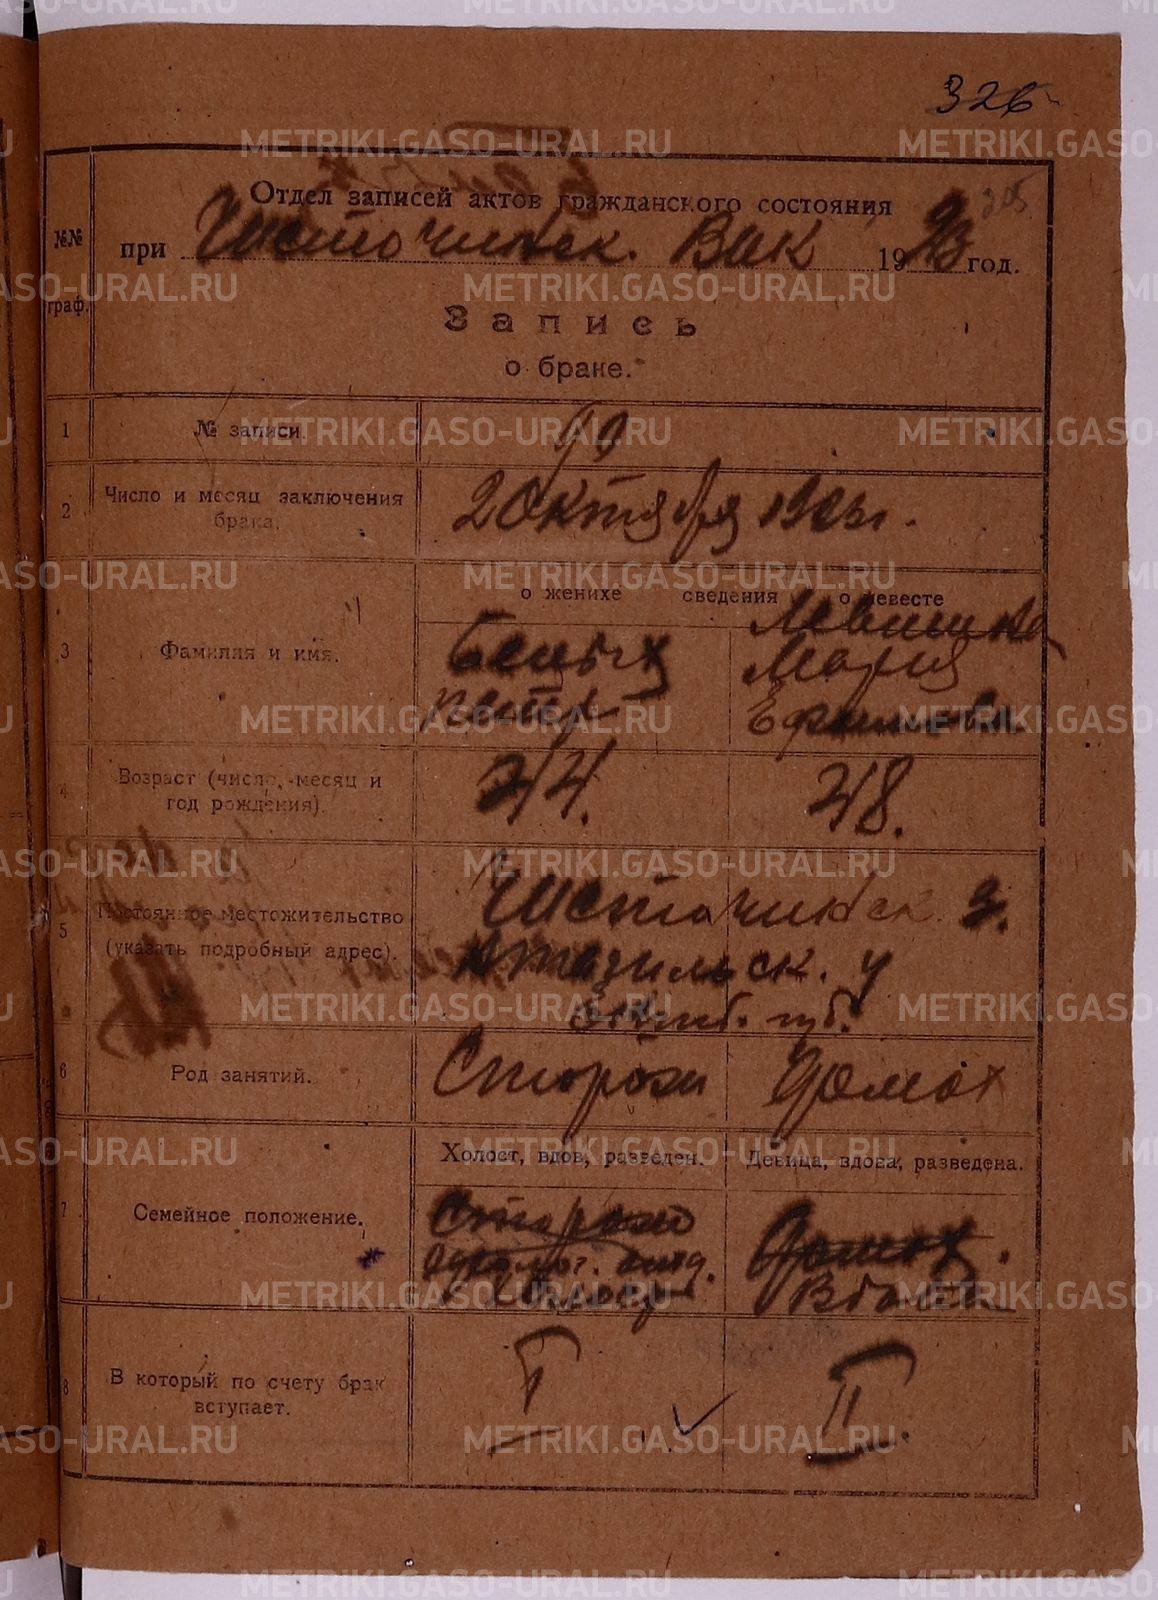 326
205
Отдел записей актов гражданского состояния
№№ граф.
при Висточинск. Вик 1923 год.
Запись
о браке.
1 № записи. 90
2 Число и месяц заключения брака. 2 Октября 1923 г.
о женихе сведения о невесте
3 Фамилия и имя.
Белых
Петр
Левицкая
Мария
Ефимовна.
4 Возраст (число, месяц и год рождения). 24. 28.
5 Постоянное местожительство (указать подробный адрес).
у
Екатб. губ.
6 Род занятий. Сторож Домох
Холост, вдов, разведен. Девица, вдова, разведена.
7 Семейное положение.
Сторож
Холост
Домох.
Вдова
8 В который по счету брак вступает. I II.
METRIKI.GASO-URAL.RU